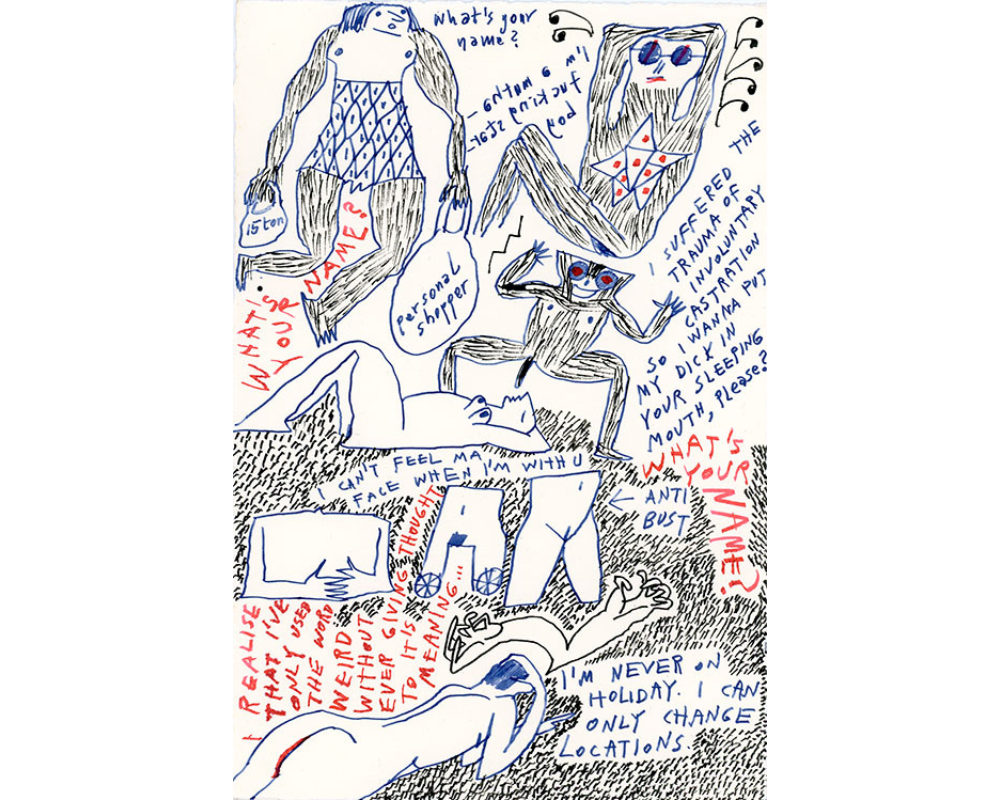 what's your
name?
I'm a mutha-
fucking star-
boy
15 ton
personal
shopper
WHAT'S
YOUR
NAME?
I SUFFERED THE
TRAUMA OF
INVOLUNTARY
CASTRATION
SO I WANNA PUT
MY DICK IN
YOUR SLEEPING
MOUTH, PLEASE?
WHAT'S
YOUR
NAME?
I CAN'T FEEL MA
FACE WHEN I'M WITH U
← ANTI
BUST
I REALISE
THAT I'VE
ONLY USED
THE WORD
WEIRD
WITHOUT
EVER GIVING THOUGHT
TO IT'S
MEANING...
I'M NEVER ON
HOLIDAY. I CAN
ONLY CHANGE
LOCATIONS.